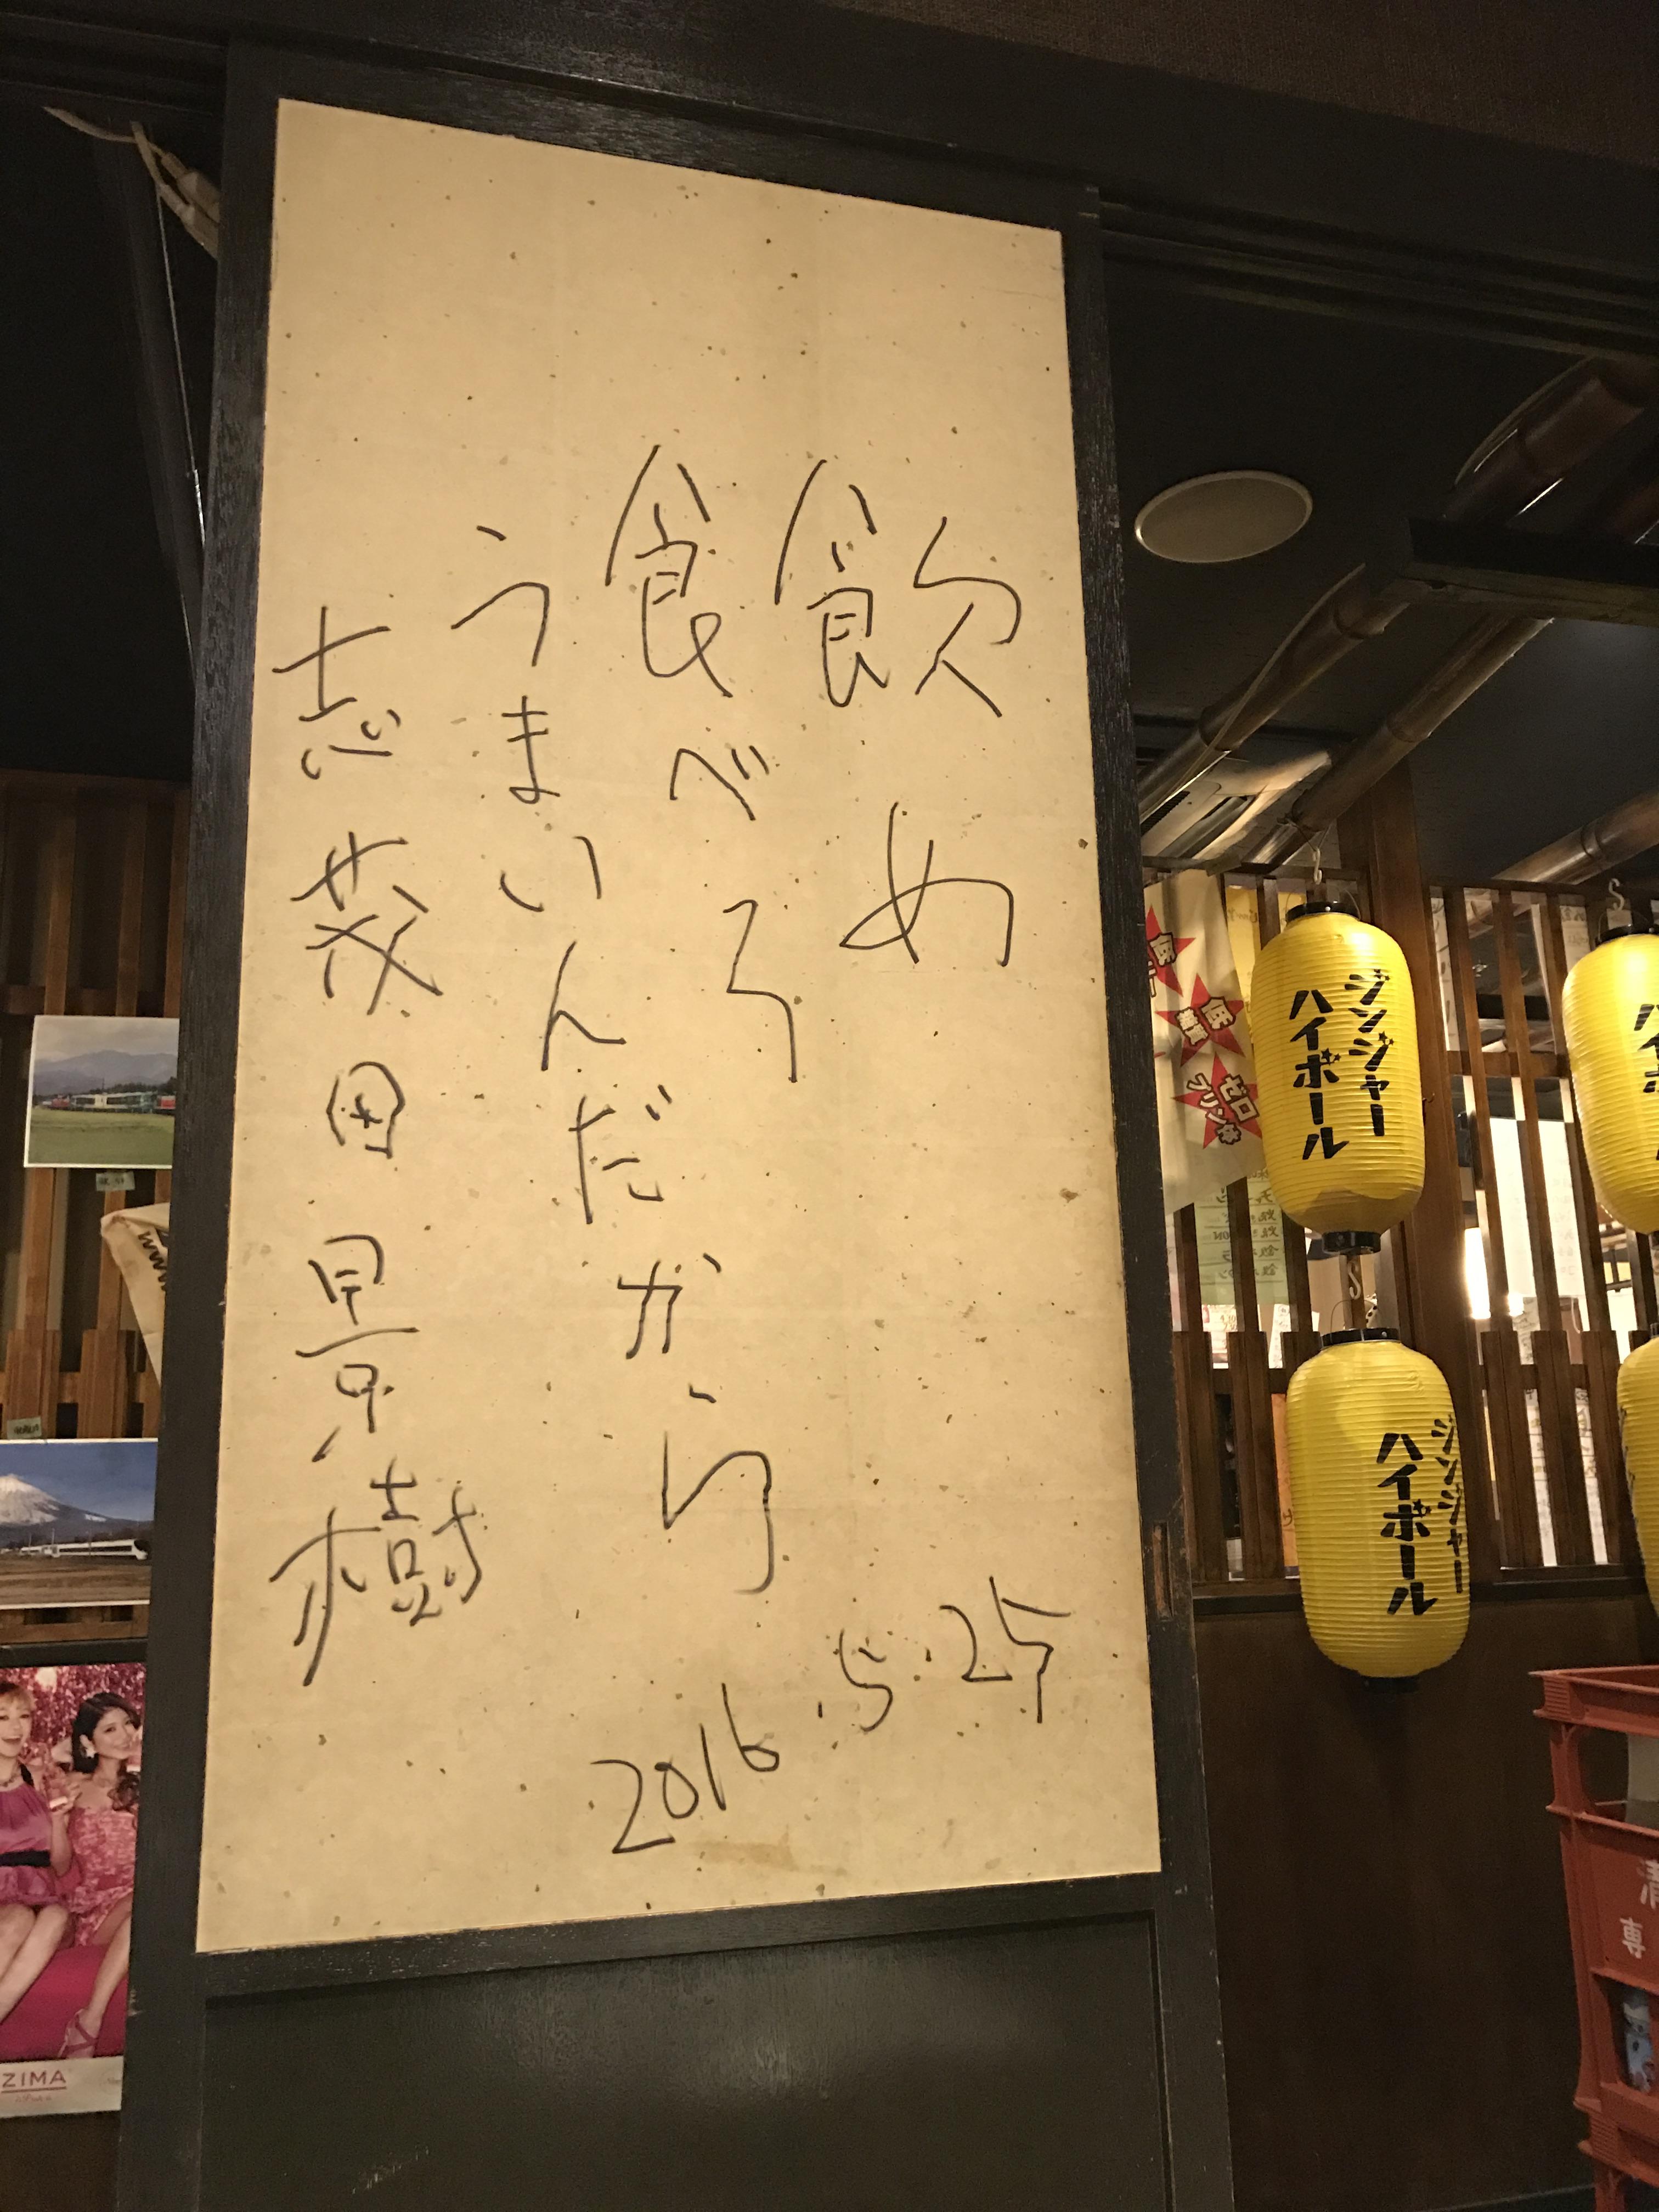 飲め
食べろ
うまいんだから
志茂田景樹
2016.5.25
ジンジャー
ハイボール
ジンジャー
ハイボール
低
低
ゼロ
プリン体
ZIMA
専